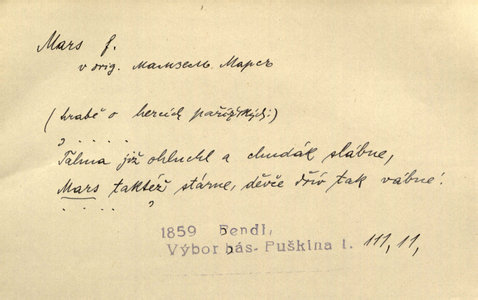 Mars f.
v orig. мамзель Марсъ
(hrabě o hercích pařížských:)
„ . . . . .
Talma již ohluchl a chudák slábne,
Mars taktéž stárne, děvče dřív tak vábné!
. . . . . "
1859 Bendl,
Výbor bás. Puškina I. 111, 11,